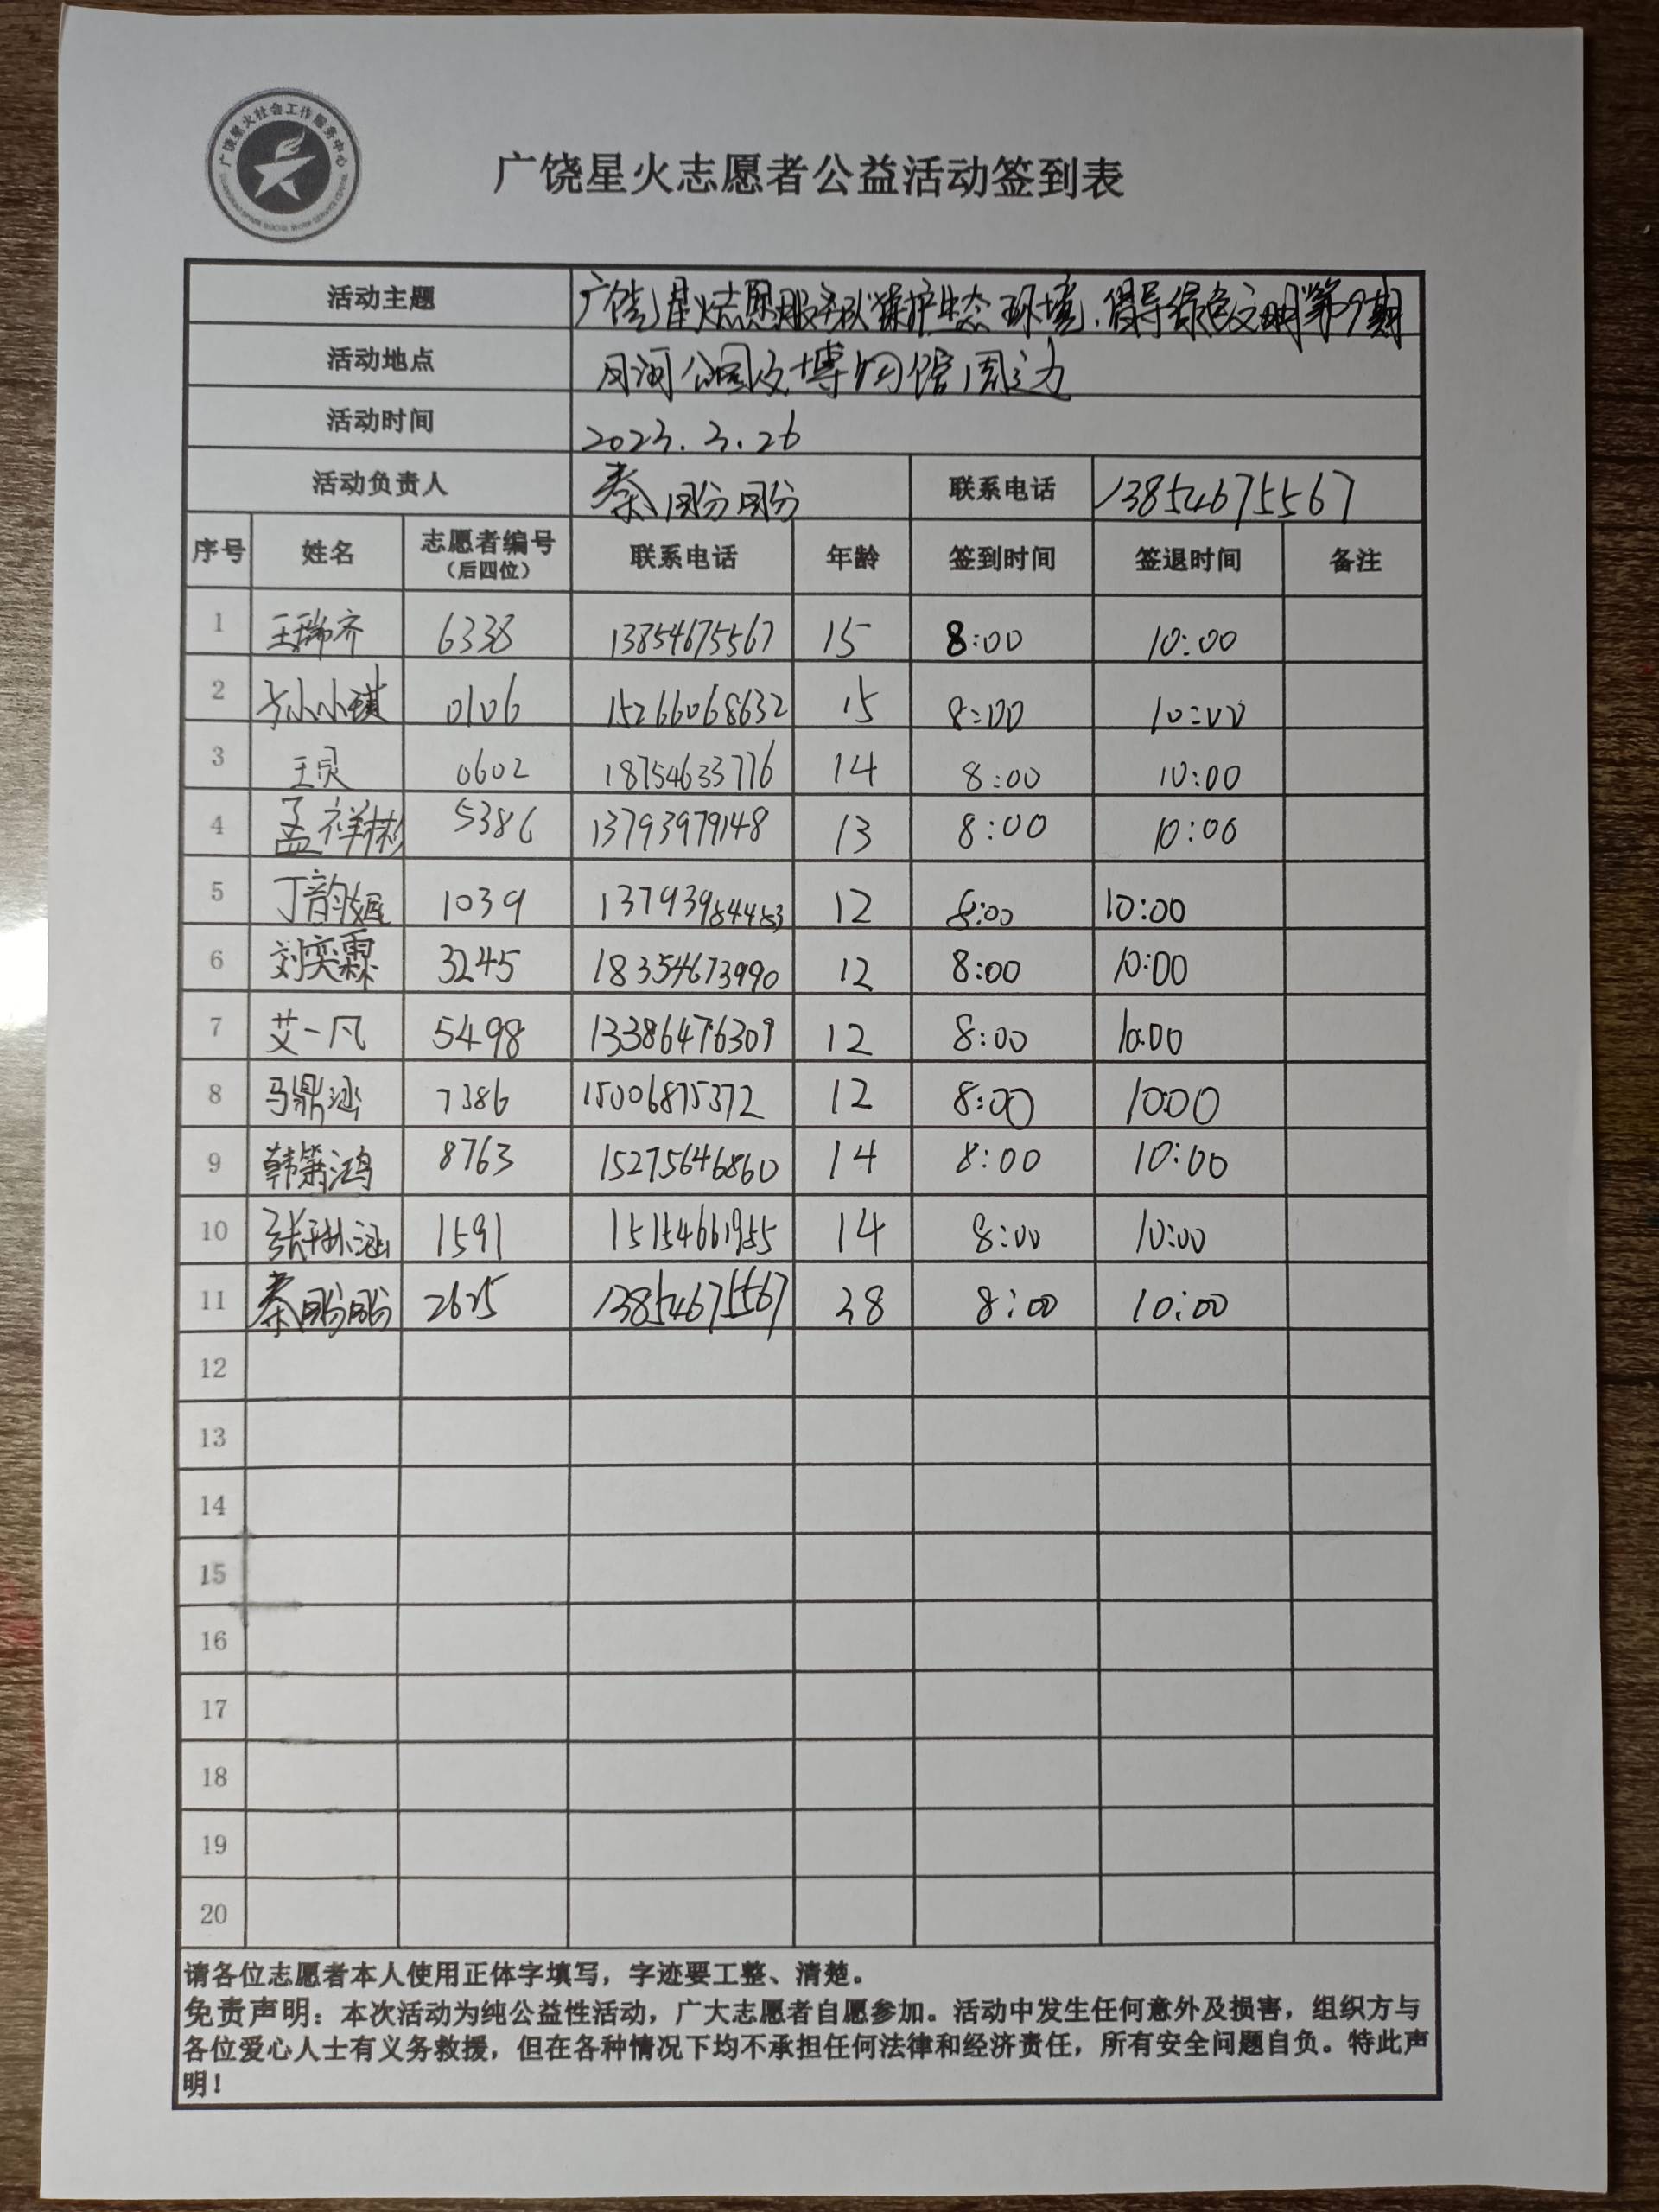 广饶星火社会工作服务中心
广饶星火志愿者公益活动签到表
活动主题 广饶星火志愿服务队"保护生态环境、倡导绿色文明"第9期
活动地点 月河公园及博物馆周边
活动时间 2023.3.26
活动负责人 秦盼盼 联系电话 13854675567
序号 姓名 志愿者编号（后四位） 联系电话 年龄 签到时间 签退时间 备注
1 王瑞齐 6338 13854675567 15 8:00 10:00
2 孙小琪 0106 15266068632 15 8:00 10:00
3 王灵 0602 18754633776 14 8:00 10:00
4 孟祥彬 5386 13793979148 13 8:00 10:00
5 丁韵姬 1039 13793984483 12 8:00 10:00
6 刘奕霖 3245 18354673990 12 8:00 10:00
7 艾一凡 5498 13386476309 12 8:00 10:00
8 马鼎涵 7386 15006875372 12 8:00 10:00
9 韩箫鸿 8763 15275646860 14 8:00 10:00
10 张琳涵 1591 15154661955 14 8:00 10:00
11 秦盼盼 2625 13854675567 38 8:00 10:00
12
13
14
15
16
17
18
19
20
请各位志愿者本人使用正体字填写，字迹要工整、清楚。
免责声明：本次活动为纯公益性活动，广大志愿者自愿参加。活动中发生任何意外及损害，组织方与
各位爱心人士有义务救援，但在各种情况下均不承担任何法律和经济责任，所有安全问题自负。特此声
明！